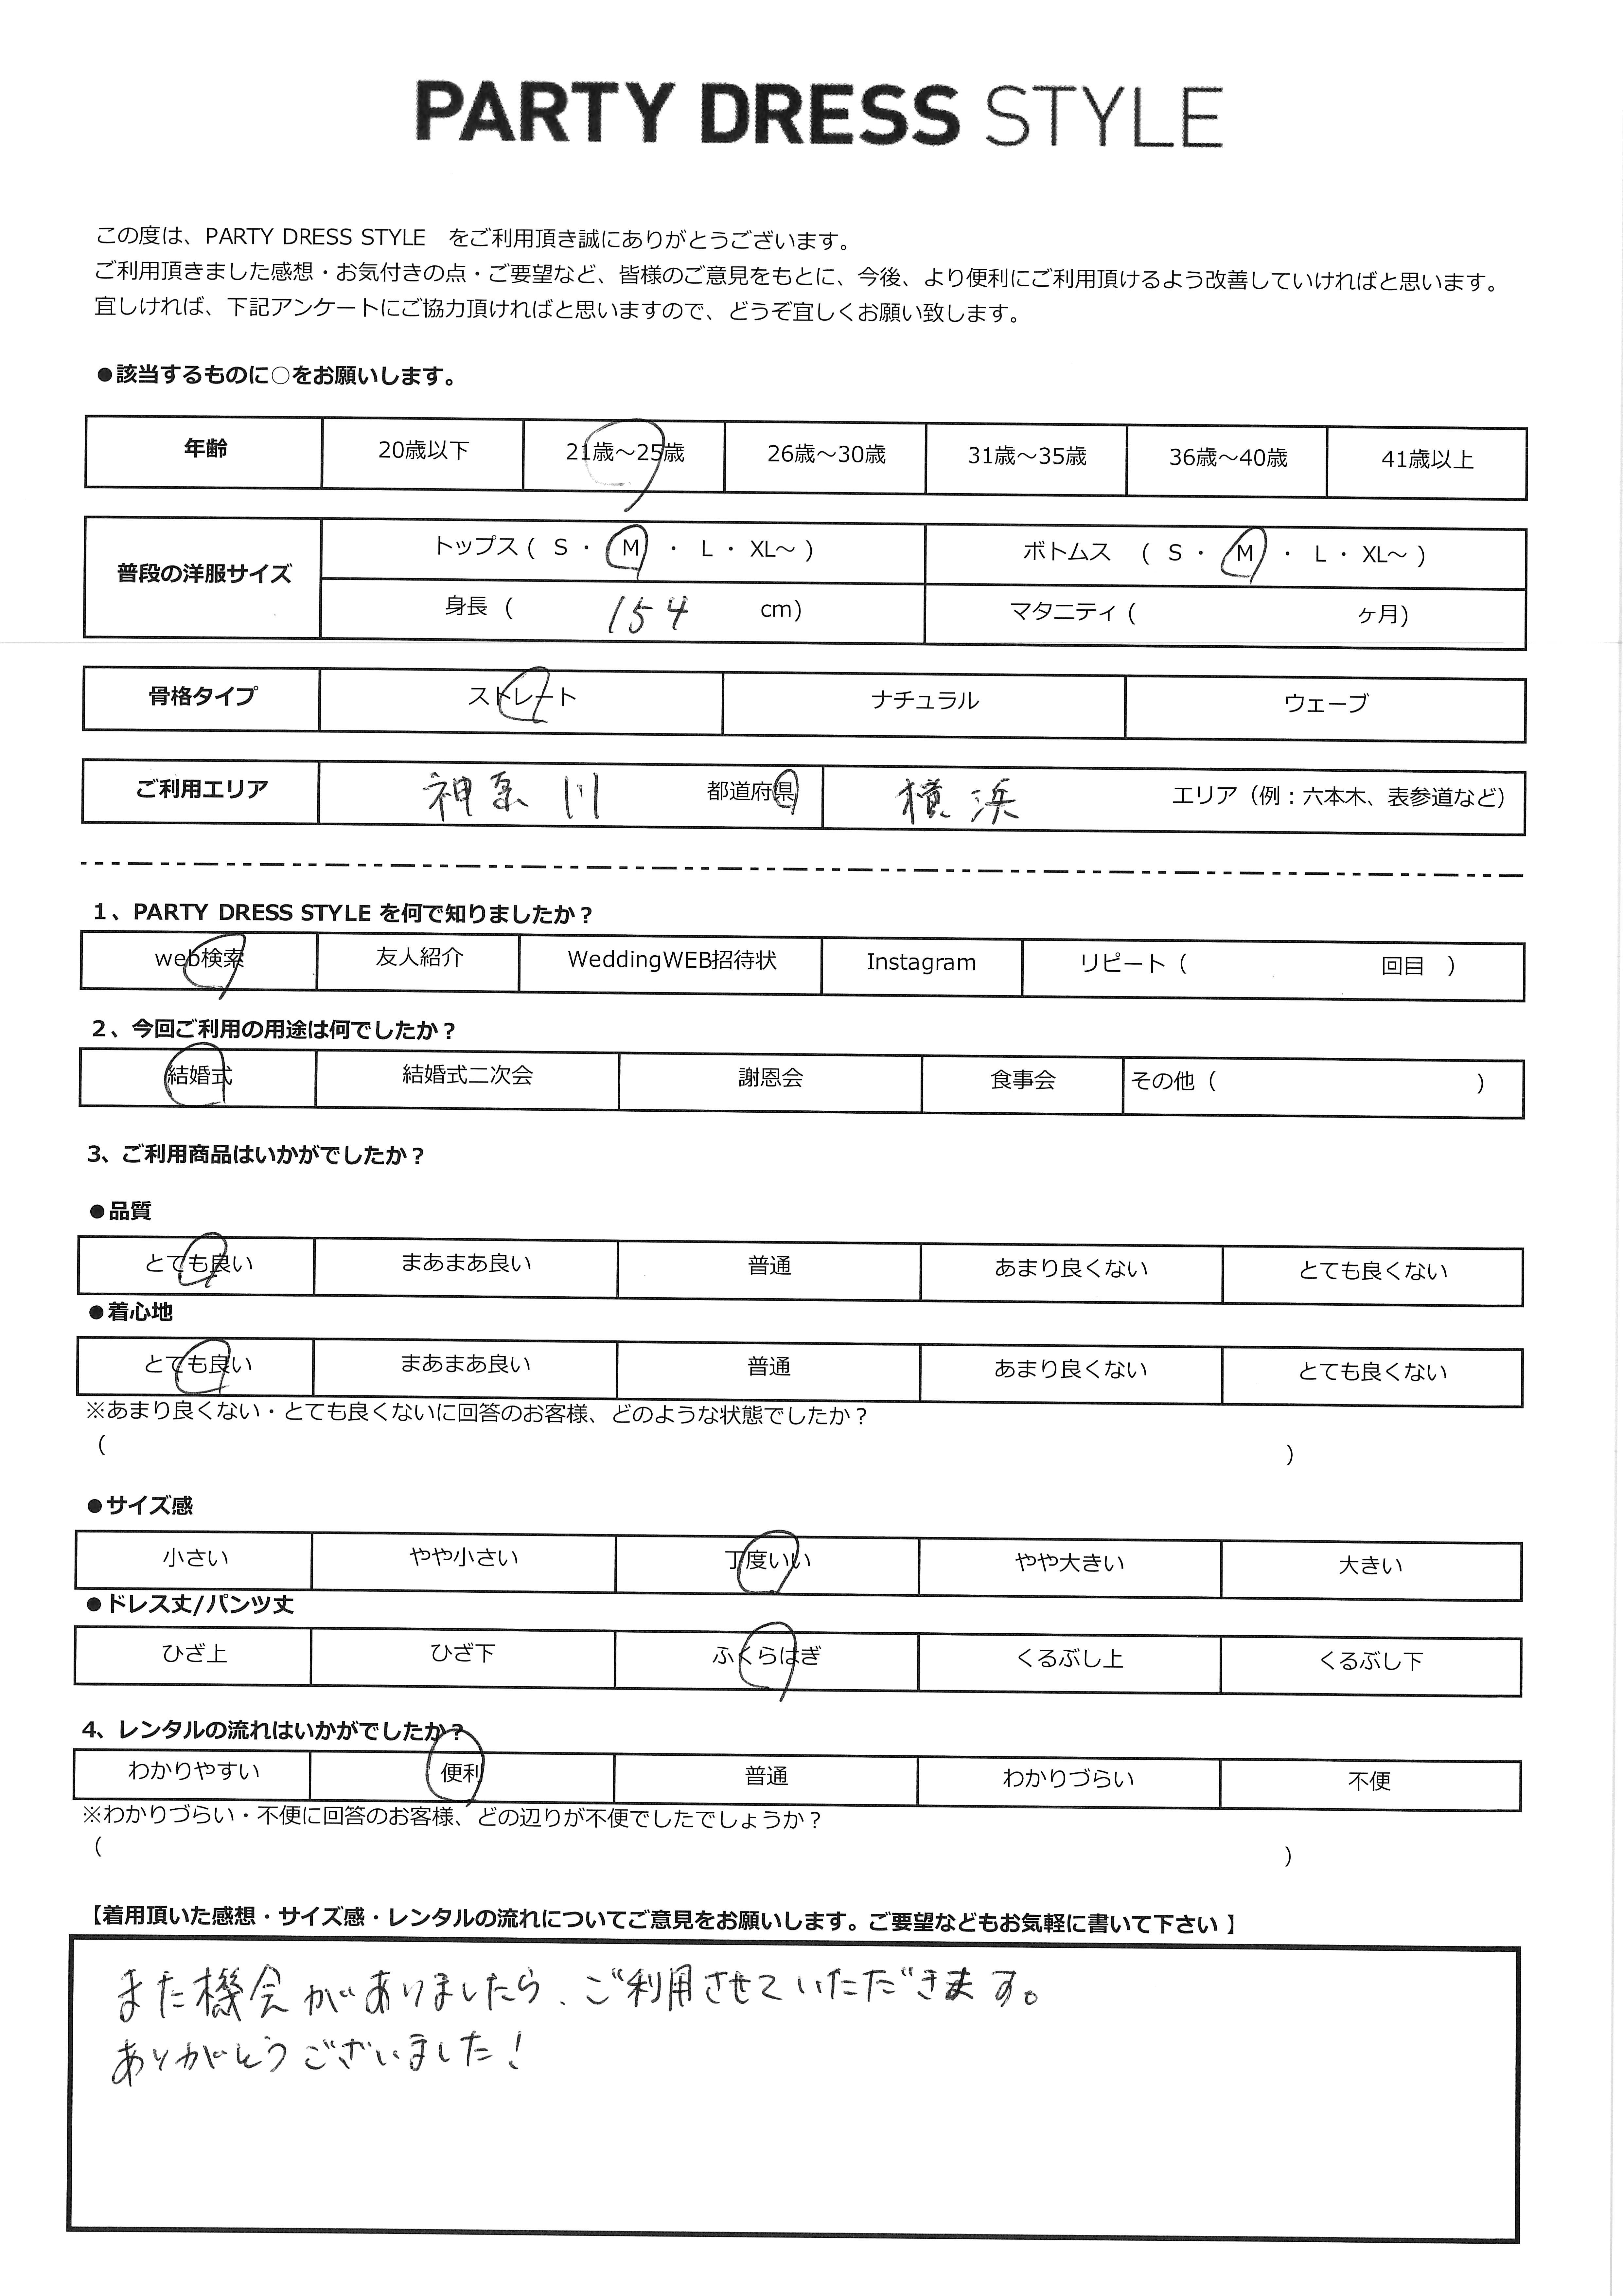 PARTY DRESS STYLE
この度は、PARTY DRESS STYLE　をご利用頂き誠にありがとうございます。
ご利用頂きました感想・お気付きの点・ご要望など、皆様のご意見をもとに、今後、より便利にご利用頂けるよう改善していければと思います。
宜しければ、下記アンケートにご協力頂ければと思いますので、どうぞ宜しくお願い致します。
●該当するものに○をお願いします。
年齢 20歳以下 21歳～25歳 26歳～30歳 31歳～35歳 36歳～40歳 41歳以上
普段の洋服サイズ トップス ( S ・ M ・ L ・ XL～ ) ボトムス ( S ・ M ・ L ・ XL～ )
身長 ( 154 cm) マタニティ ( ヶ月)
骨格タイプ ストレート ナチュラル ウェーブ
ご利用エリア 神奈川 都道府県 横浜 エリア（例：六本木、表参道など）
1、PARTY DRESS STYLE を何で知りましたか？
web検索 友人紹介 WeddingWEB招待状 Instagram リピート（ 回目 ）
2、今回ご利用の用途は何でしたか？
結婚式 結婚式二次会 謝恩会 食事会 その他（ ）
3、ご利用商品はいかがでしたか？
●品質
とても良い まあまあ良い 普通 あまり良くない とても良くない
●着心地
とても良い まあまあ良い 普通 あまり良くない とても良くない
※あまり良くない・とても良くないに回答のお客様、どのような状態でしたか？
（ ）
●サイズ感
小さい やや小さい 丁度いい やや大きい 大きい
●ドレス丈/パンツ丈
ひざ上 ひざ下 ふくらはぎ くるぶし上 くるぶし下
4、レンタルの流れはいかがでしたか？
わかりやすい 便利 普通 わかりづらい 不便
※わかりづらい・不便に回答のお客様、どの辺りが不便でしたでしょうか？
（ ）
【着用頂いた感想・サイズ感・レンタルの流れについてご意見をお願いします。ご要望などもお気軽に書いて下さい 】
また機会がありましたら、ご利用させていただきます。
ありがとうございました！